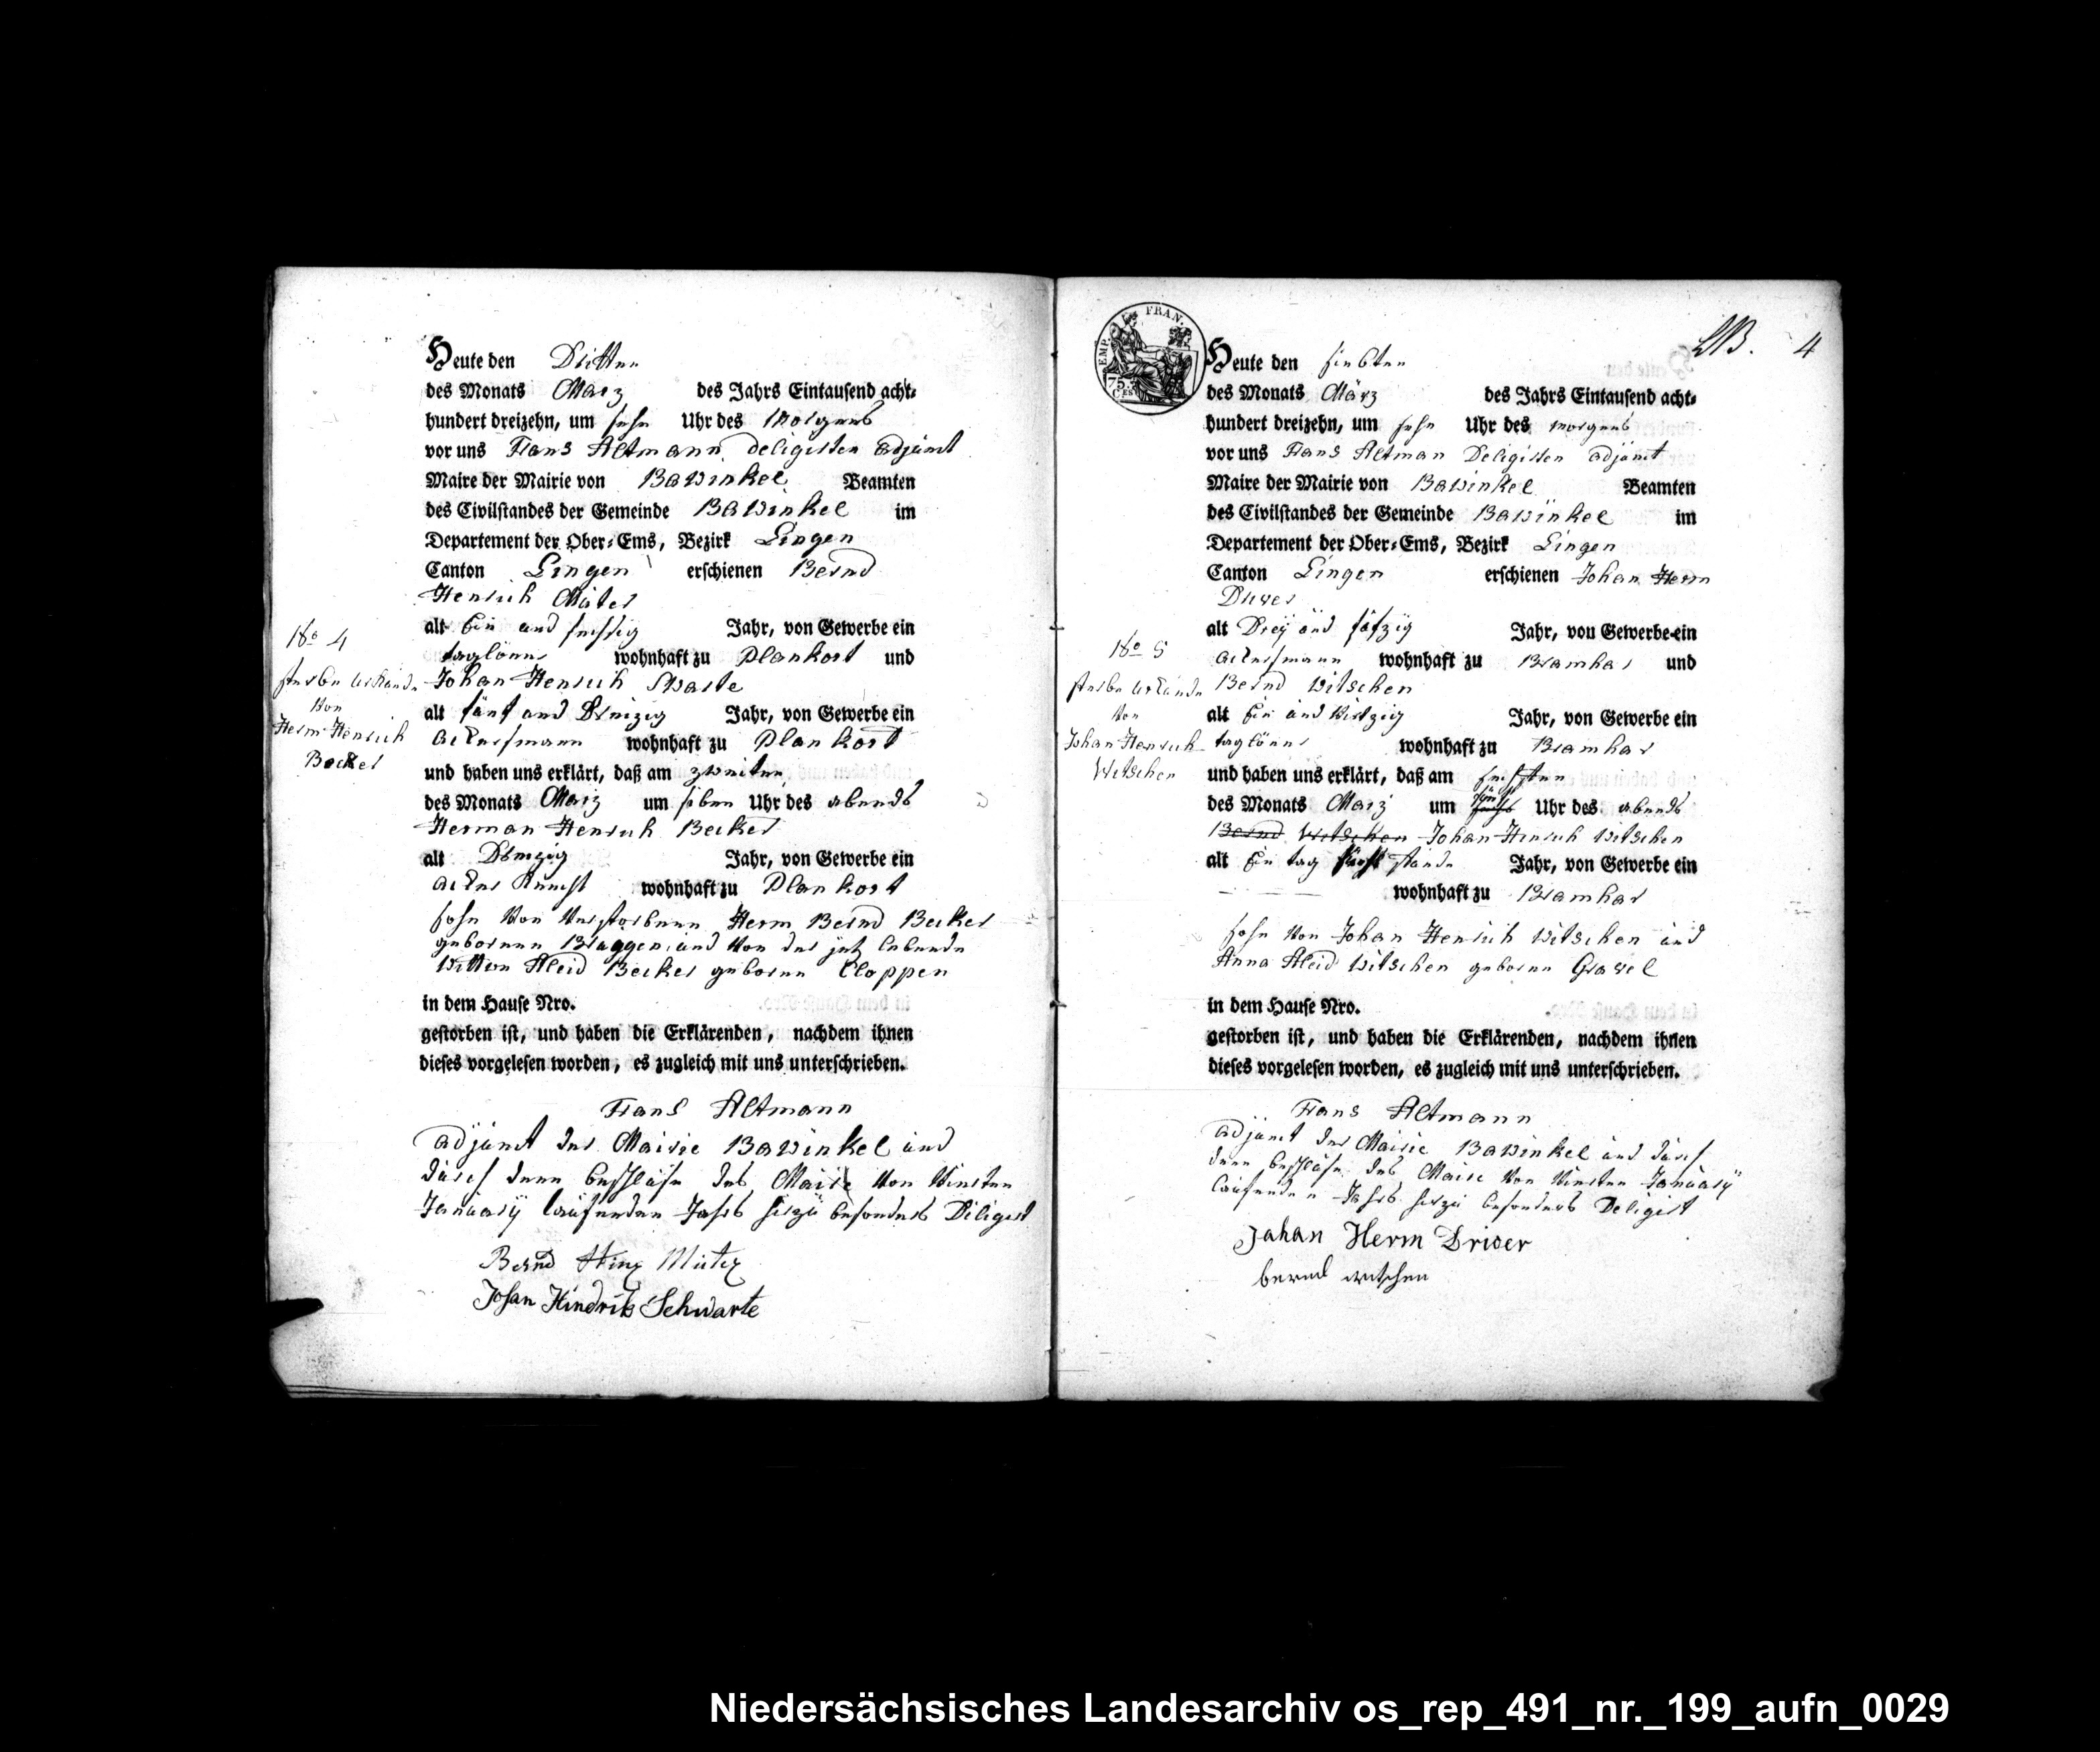 Heute den Dritten
des Monats März des Jahrs Eintausend acht-
hundert dreizehn, um zehn Uhr des Morgens
vor uns Frans Altmann deligirten adjunct
Maire der Mairie von Bawinkel Beamten
des Civilstandes der Gemeinde Bawinkel im
Departement der Ober-Ems, Bezirk Lingen
Canton Lingen erschienen Bernd
Henrich Müter
alt Ein und sechsig Jahr, von Gewerbe ein
taglöner wohnhaft zu Plankort und
Johan Henrich Swarte
alt fünf und Dreizig Jahr, von Gewerbe ein
Ackersmann wohnhaft zu Plankort
und haben uns erklärt, daß am zweiten
des Monats März um siben Uhr des abends
Herman Henrich Becker
alt Jahr, von Gewerbe ein
acker Knecht wohnhaft zu Plankort
sohn Von Verstorbenen Herm Bernd Becker
gebornen Bruggen und Von der jetz lebende
Wittwe Aleid Becker geborne Cloppen
in dem Hause Nro.
gestorben ist, und haben die Erklärenden, nachdem ihnen
dieses vorgelesen worden, es zugleich mit uns unterschrieben.
Frans Altmann
adjunct der Mairie Bawinkel und
durch denn beschluße des Maire Von Vierten
January laufenden Jahrs hirzu besonders Deligirt
Bernd Hinr Müter
Johan Hindrik Schwarte
No 4
sterbe Urkunde
Von
Herm Henrich
Becker
EMP. FRAN.
75.
CES
LB. 4
Heute den siebten
des Monats März des Jahrs Eintausend acht-
hundert dreizehn, um zehn Uhr des morgens
vor uns Frans Altman Deligirten adjunct
Maire der Mairie von Bawinkel Beamten
des Civilstandes der Gemeinde Bawinkel im
Departement der Ober-Ems, Bezirk Lingen
Canton Lingen erschienen Johan Herm
Driver
alt Drey und füfzig Jahr, von Gewerbe ein
ackersmann wohnhaft zu Bramhar und
Bernd Witschen
alt Ein und Virtzig Jahr, von Gewerbe ein
taglöner wohnhaft zu Bramhar
und haben uns erklärt, daß am sechsten
des Monats März um Uhr des abends
Bernd Witschen Johan Henrich Witschen
alt Ein tag stunde Jahr, von Gewerbe ein
wohnhaft zu Bramhar
sohn Von Johan Henrich Witschen und
Anna Aleid Witschen geborne Gravel
in dem Hause Nro.
gestorben ist, und haben die Erklärenden, nachdem ihnen
dieses vorgelesen worden, es zugleich mit uns unterschrieben.
Frans Altmann
adjunct der Mairie Bawinkel und durch
denn beschluße des Maire Von Vierten January
laufenden Jahrs hirzu besonders Deligirt
Johan Herm Driver
bernd witschen
No 5
sterbe Urkunde
Von
Johan Henrich
Witschen
Niedersächsisches Landesarchiv os_rep_491_nr._199_aufn_0029